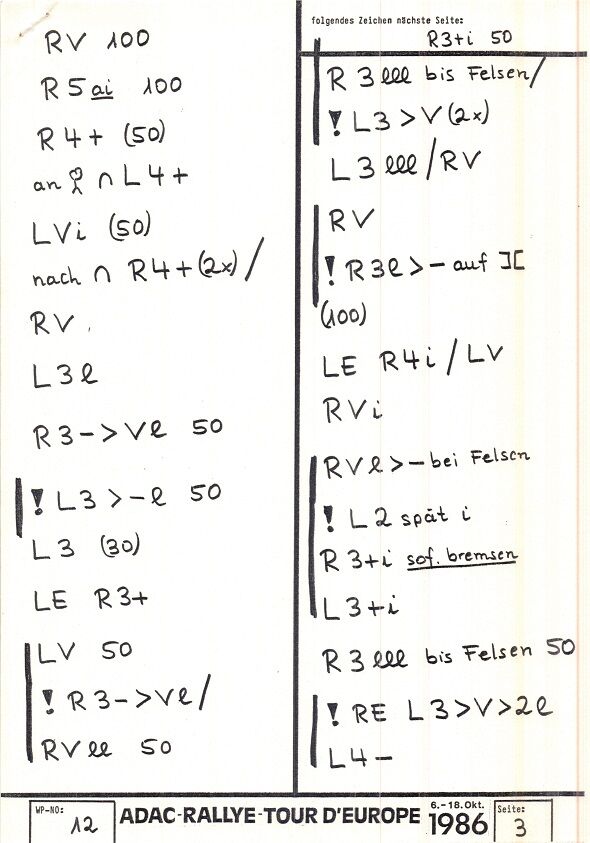 RV 100
R5ai 100
R4+ (50)
an ∩ L4+
LVi (50)
nach ∩ R4+(2x)/
RV
L3l
R3->Vl 50
! L3>-l 50
L3 (30)
LE R3+
LV 50
! R3->Vl/
RVll 50
folgendes Zeichen nächste Seite:
R3+i 50
R 3lll bis Felsen/
! L3>V(2x)
L3lll/RV
RV
! R3l>-auf ][
(100)
LE R4i/LV
RVi
RVl>-bei Felsen
! L2 spät i
R3+i sof. bremsen
L3+i
R3lll bis Felsen 50
! RE L3>V>2l
L4-
WP-NO: 12
ADAC-RALLYE-TOUR D'EUROPE
6.-18.Okt.
1986
Seite: 3